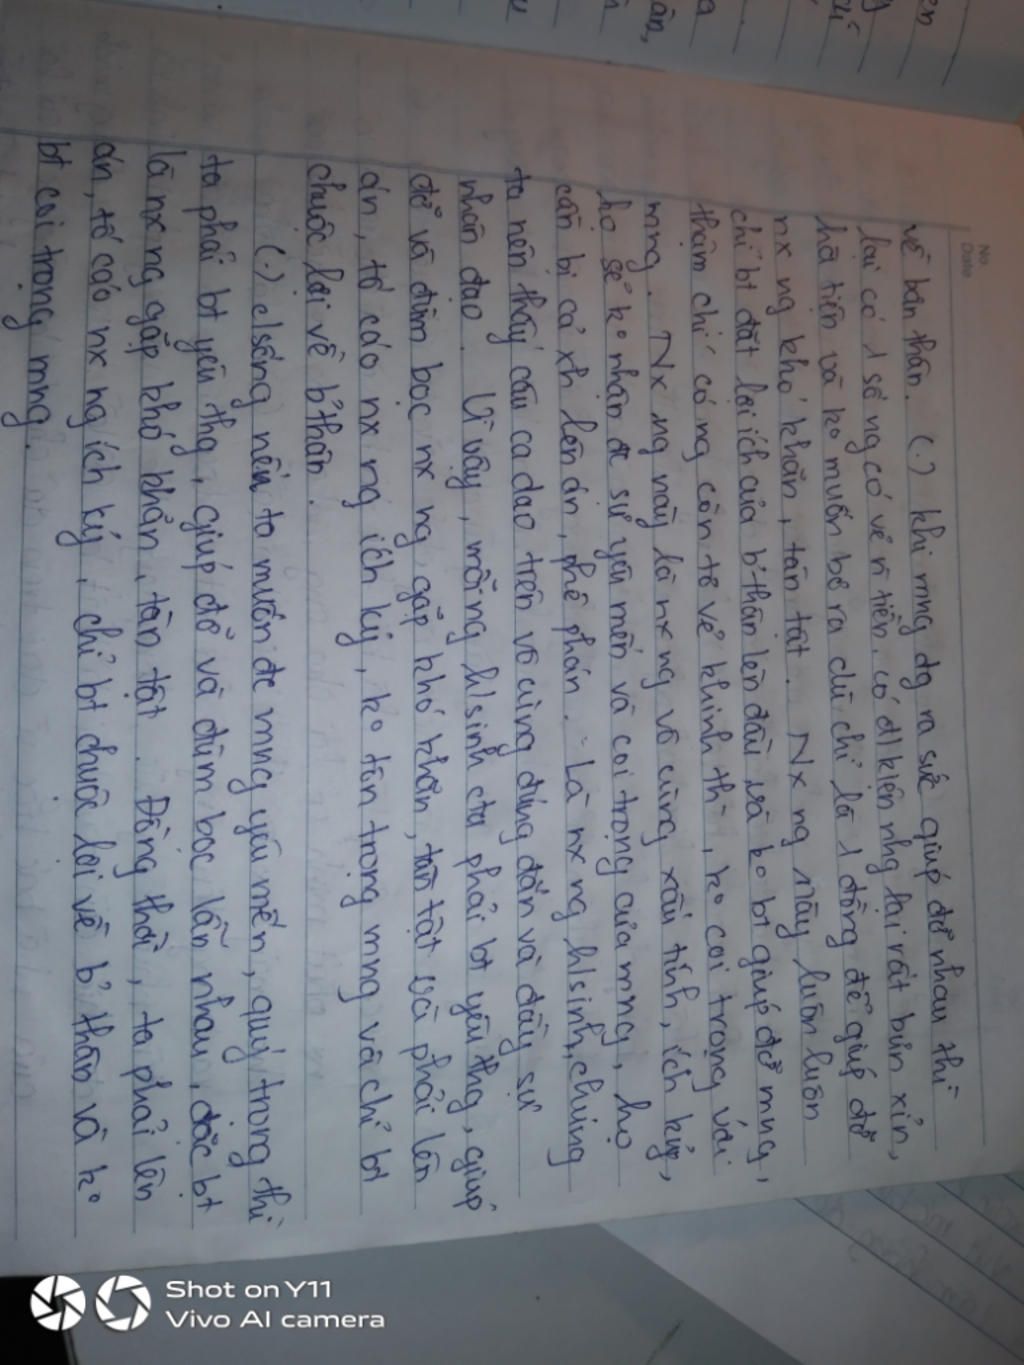 No.
Date
về bản thân. (.) khi mng đg ra sức giúp đỡ nhau thì
lại có 1 số ng có về n tiền, có đ/kiện nhg lại rất bủn xỉn,
hà tiện và ko muốn bỏ ra dù chỉ là 1 đồng để giúp đỡ
nx ng khó khăn, tàn tật... Nx ng này luôn luôn
chỉ bt đặt lợi ích của b' thân lên đầu và ko bt giúp đỡ mng,
thậm chí có ng còn tỏ vẻ khinh th , ko coi trọng với
mng. Nx ng này là nx ng vô cùng xấu tính, ích kỷ,
họ sẽ ko nhận đc sự yêu mến và coi trọng của mng, họ
cần bị cả xh lên án, phê phán. Là nx ng h/sinh, chúng
ta nên thấy câu ca dao trên vô cùng đúng đắn và đầy sự
nhân đạo. Vì vậy, mỗi ng h/sinh cta phải bt yêu thg, giúp
đỡ và đùm bọc nx ng gặp khó khăn, tàn tật và phải lên
án, tố cáo nx ng ích kỷ, ko tôn trọng mng và chỉ bt
chuộc lợi về b' thân.
(.) c/sống nếu ta muốn đc mng yêu mến, quý trọng thì
ta phải bt yêu thg, giúp đỡ và đùm bọc lẫn nhau, đặc bt
là nx ng gặp khó khăn, tàn tật. Đồng thời, ta phải lên
án, tố cáo nx ng ích kỷ, chỉ bt chuộc lợi về b' thân và ko
bt coi trọng mng.
Shot on Y11
Vivo AI camera